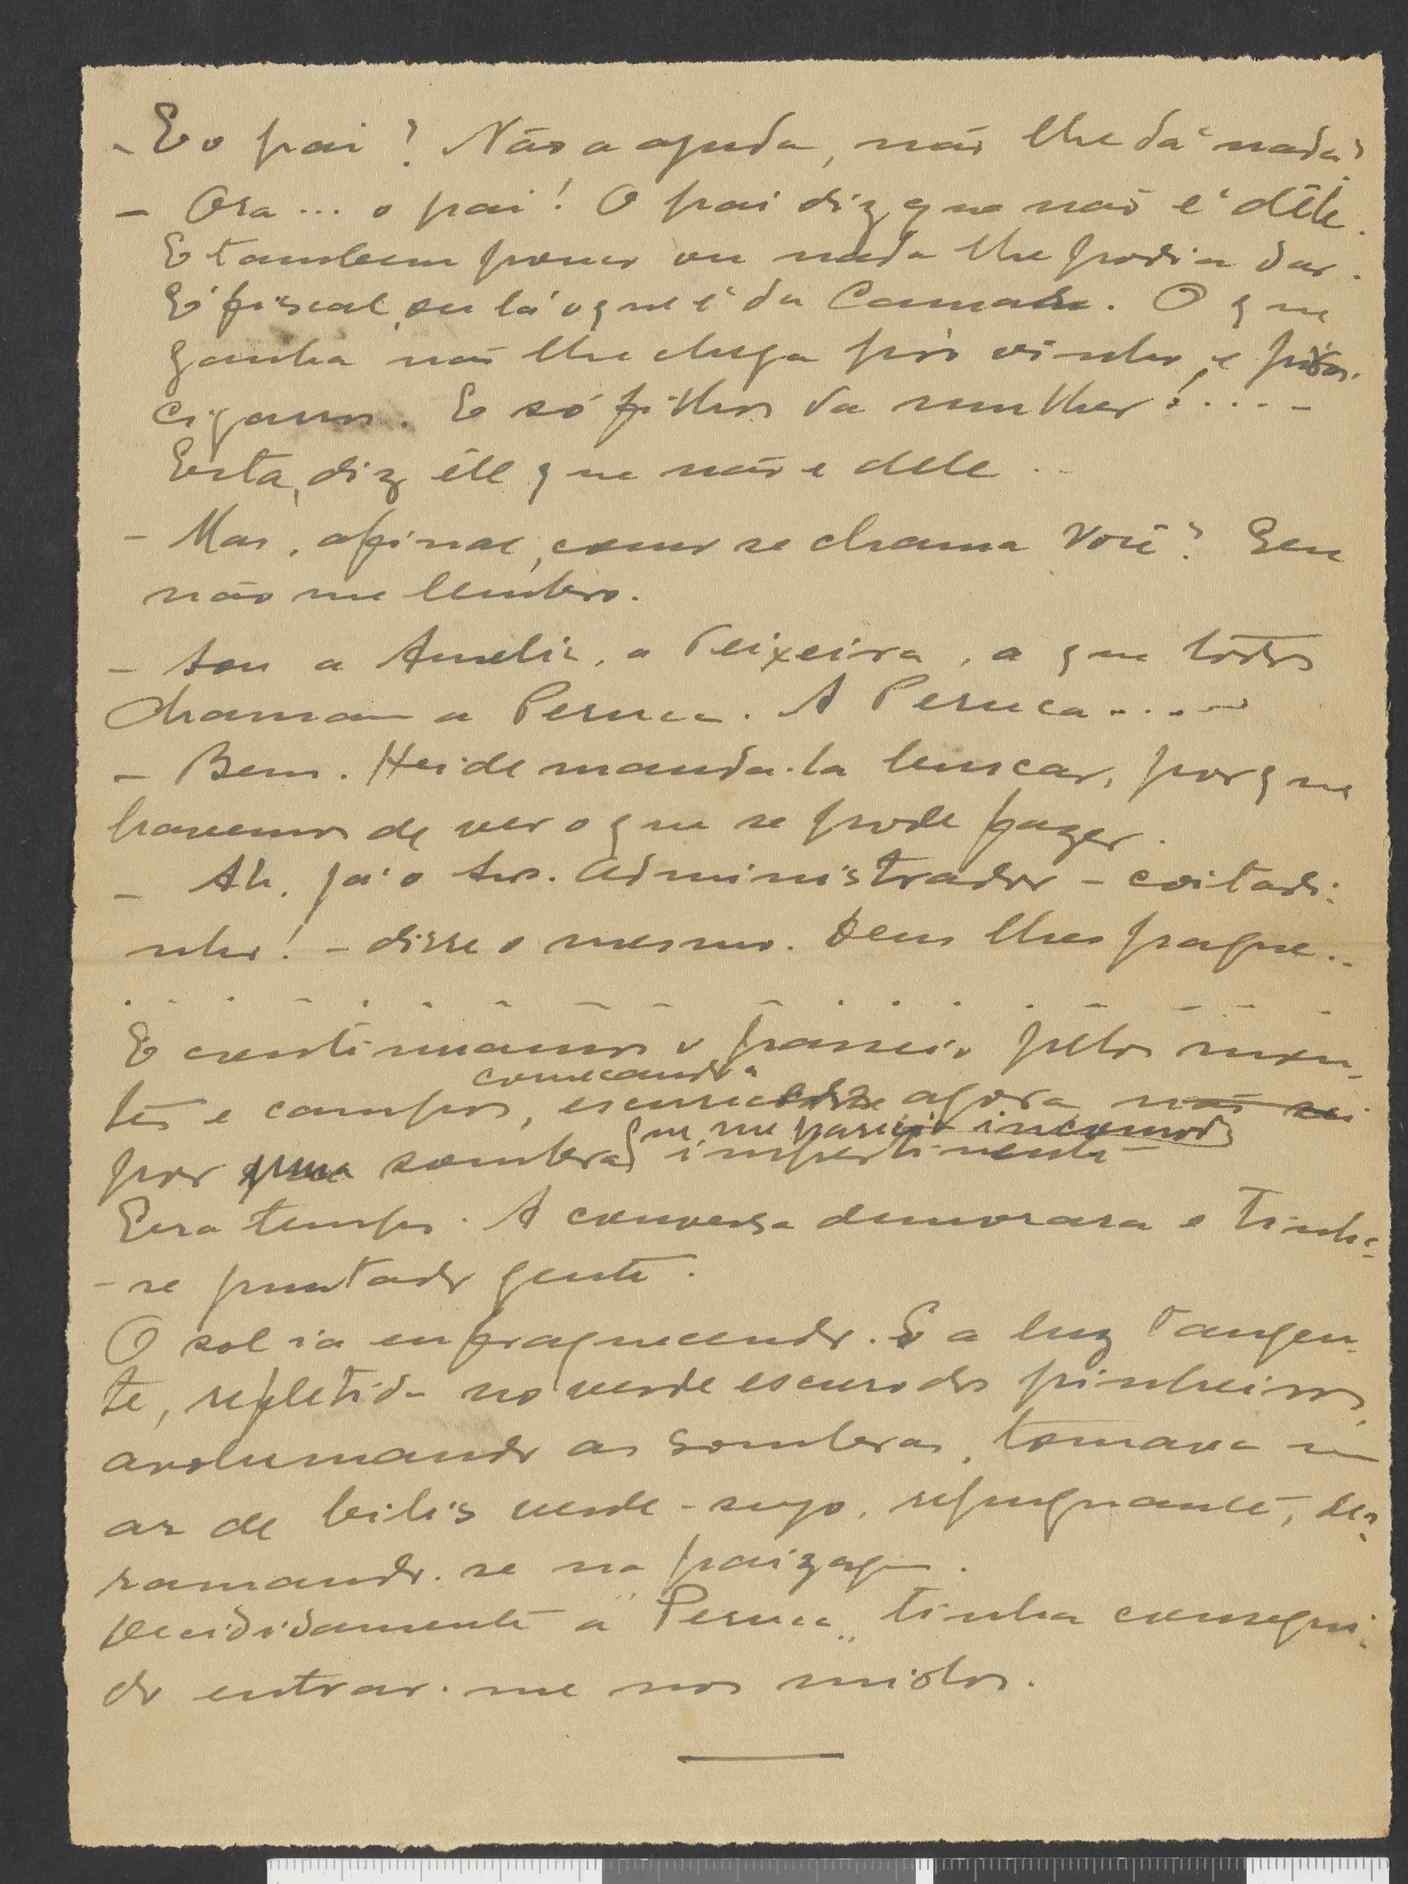 - E o pai? Não a ajuda, não lhe dá nada?
- Ora... o pai! O pai diz que não é dêle.
E tambem pouco ou nada lhe podia dar.
É fiscal, sei lá o que é da Camara. O que
ganha não lhe chega pró vinho e pros
cigarros. E só filhos da mulher!....-
Esta, diz êle que não e dele..
- Mas, afinal, como se chama Você? Eu
não me lembro.
- Sou a Amelia, a Teixeira, a que todos
chamam a Peruca. A Peruca....
- Bem. Hei de manda-la buscar, porque
havemos de ver o que se pode fazer.
- Ah, já o Snr. Administrador - coitadi-
nho! - disse o mesmo. Deus lhes pague...
. . . . . . . . . . . . . . . . .
E continuámos o passeio pelos mon-
começando a
tes e campos, agora não sei
que me parecia incomodo
por sombras impertinente
Era tempo. A conversa demorara e tinha-
-se juntado gente.
O sol ia enfraquecendo. E a luz tangen-
te, refletida no verde escuro dos pinheiros,
avolumando as sombras, tomava um
ar de bilis verde-sujo, repugnante, der-
ramando-se na paizagem.
Decididamente a "Peruca" tinha consegui-
do entrar-me nos miolos.